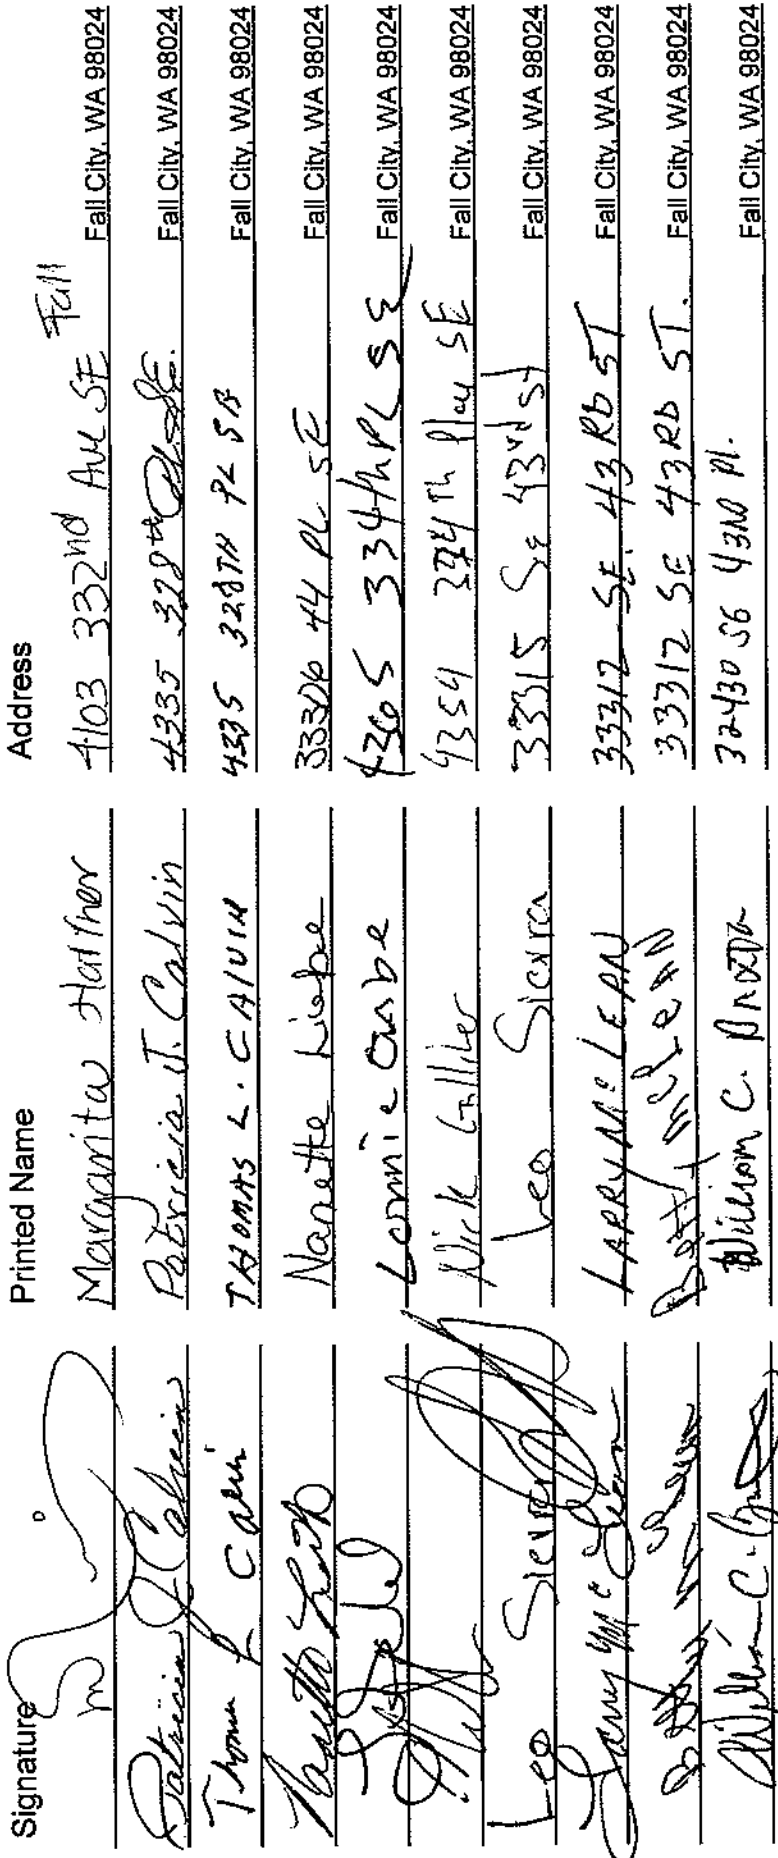 Signature Printed Name Address
Margarita 4103 332nd Ave SE Fall Fall City, WA 98024
Patricia J Calvin Patricia J. Calvin 4335 328th Pl SE. Fall City, WA 98024
Thomas L Calvin THOMAS L. CALVIN 4335 328TH PL SE Fall City, WA 98024
Nanette 44 PL SE Fall City, WA 98024
Lonnie 334th PL SE Fall City, WA 98024
Nick 4354 SE Fall City, WA 98024
Leo Sierra Leo Sierra 33315 SE 43rd St Fall City, WA 98024
Larry McLean LARRY McLEAN 33312 SE. 43RD ST Fall City, WA 98024
McLean 33312 SE 43RD ST. Fall City, WA 98024
William C. William C. 32430 SE 43RD Pl. Fall City, WA 98024